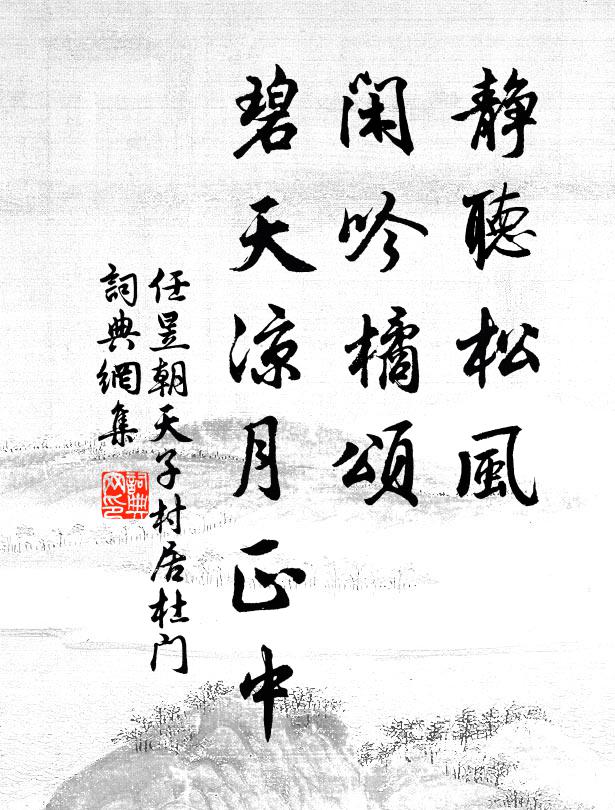 靜聽松風
閑吟橘頌
碧天涼月正中
任昱朝天子村居杜门
詞典網集
詞典
网印